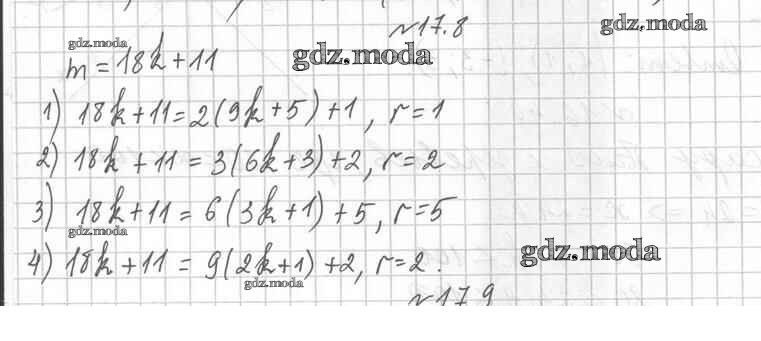 №17.8
gdz.moda
gdz.moda
gdz.moda
m = 18k + 11
1) 18k + 11 = 2(9k + 5) + 1, r = 1
2) 18k + 11 = 3(6k + 3) + 2, r = 2
3) 18k + 11 = 6(3k + 1) + 5, r = 5
gdz.moda
4) 18k + 11 = 9(2k + 1) + 2, r = 2.
gdz.moda
gdz.moda
№17.9